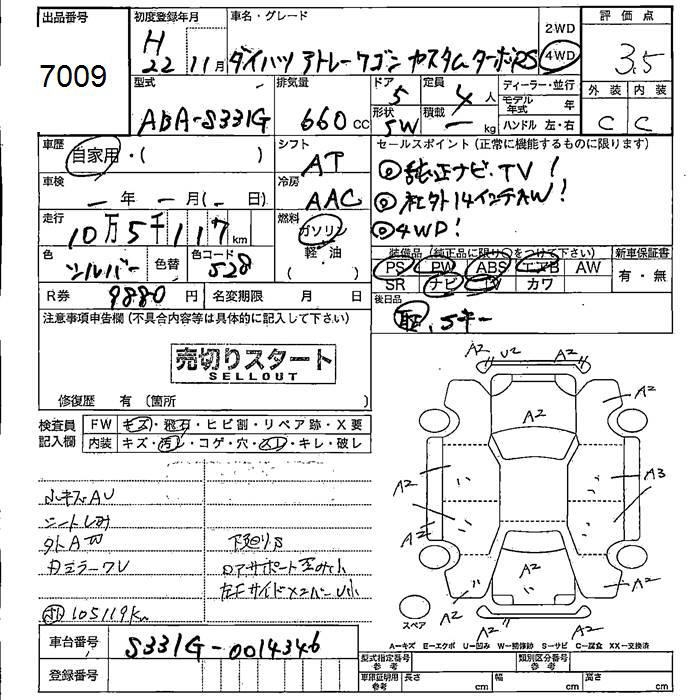 出品番号 初度登録年月 車名・グレード 2WD 4WD 評価点
7009 H 22 11月 ダイハツ アトレーワゴン カスタムターボRS 3.5
型式 排気量 ドア 定員 ディーラー・並行 外装 内装
ABA-S331G 660cc 5 4人 モデル年式 年 C C
形状 積載 ハンドル 左・右
5W - kg
車歴 自家用・( ) シフト AT セールスポイント (正常に機能するものに限ります)
車検 - 年 - 月(- 日) 冷房 AAC ◎純正ナビ・TV!
◎社外14インチAW!
走行 10万5千117km 燃料 ガソリン 軽・油 ( ) ◎4WD!
色 シルバー 色替 色コード S28 装備品 (純正品に限り○をつけて下さい) 新車保証書
PS PW ABS エアB AW 有・無
SR ナビ TV カワ
R券 9880円 名変期限 月 日 後日品
注意事項申告欄 (不具合内容等は具体的に記入して下さい) 、Sキー
売切りスタート
SELLOUT
修復歴 有 (箇所 )
検査員記入欄 FW キズ・飛石・ヒビ割・リペア跡・X要
内装 キズ・汚レ・コゲ・穴・スレ・キレ・破レ
A2 U2 A2
A2 A2
A2
A2 A3
A2 A2
A2
A2 A2
A2 A2
小キズAU
シート
外A 下廻りS
ミラーワU
105119km
スペア
A=キズ E=エクボ U=凹み W=補修跡 S=サビ C=腐食 XX=交換済
車台番号 S331G-0014346
登録番号
型式指定番号 参考 類別区分番号 参考
車庫証明用 参考 長さ cm 幅 cm 高さ cm